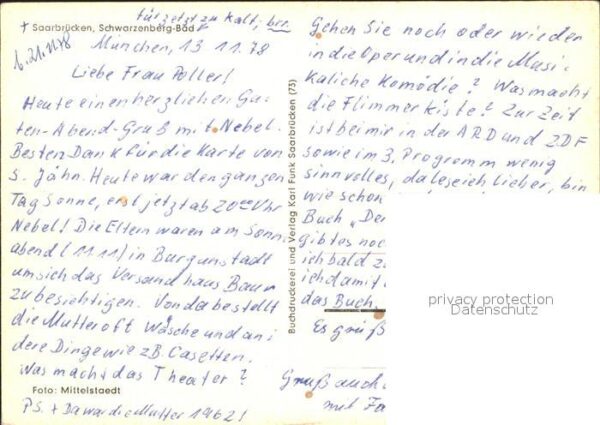 + Saarbrücken, Schwarzenberg-Bad
für jetzt zu kalt, brr.
München, 13 11.78
Liebe Frau Poller!
Heute einen herzlichen Gu-
ten-Abend-Gruß mit Nebel.
Besten Dank für die Karte von
S. Jähn. Heute war den ganzen
Tag Sonne, erst jetzt ab 20 Uhr
Nebel! Die Eltern waren am Sonn
abend (11 11) in Burgkunstadt
um sich das Versandhaus Baur
zu besichtigen. Von da bestellt
die Mutter oft Wäsche und an
dere Dinge wie z.B. Casetten.
Was macht das Theater?
Foto: Mittelstaedt
P.S. + Da war die Mutter 1962!
Buchdruckerei und Verlag Karl Funk Saarbrücken (73)
Gehen Sie noch oder wieder
in die Oper und in die Musi-
kalische Komödie? Was macht
die Flimmerkiste? Zur Zeit
ist bei mir in der ARD und ZDF
sowie im 3. Programm wenig
sinnvolles, da lese ich lieber, bin
wie schon
Buch "De
gibt es noc
ich bald z
ich damit
das Buch
Es grüß
Gruß auch
mit Fa
privacy protection
Datenschutz